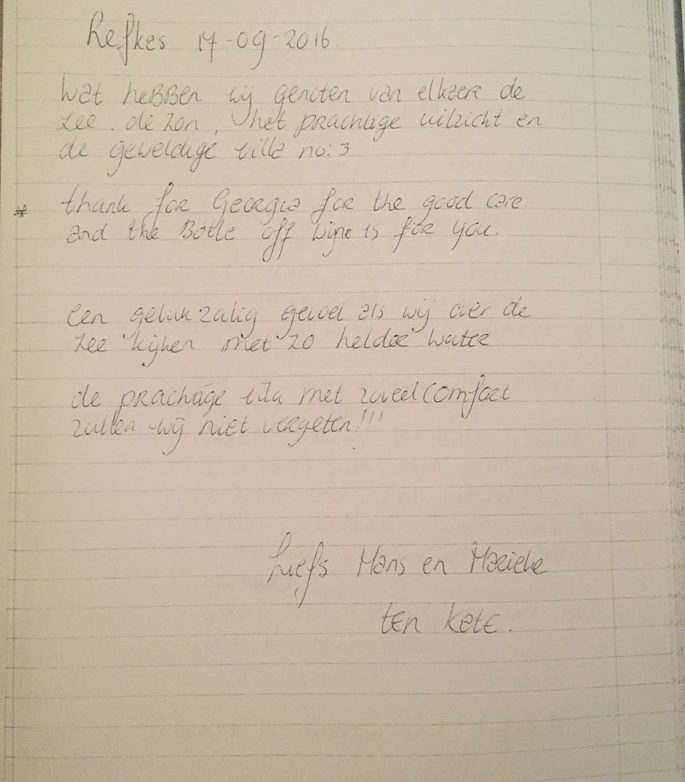 Lefkes 17-09-2016
Wat hebben wij genoten van elkaer de
zee. de zon, het prachtige uitzicht en
de geweldige villa no: 3
* thank for Georgia for the good care
and the Botle off wijne is for you.
een geluk zalig gevoel als wij over de
zee kijken met zo helder water
de prachtige villa met zoveel comfort
zullen wij niet vergeten!!!
Liefs Hans en Marieke
ten kate.